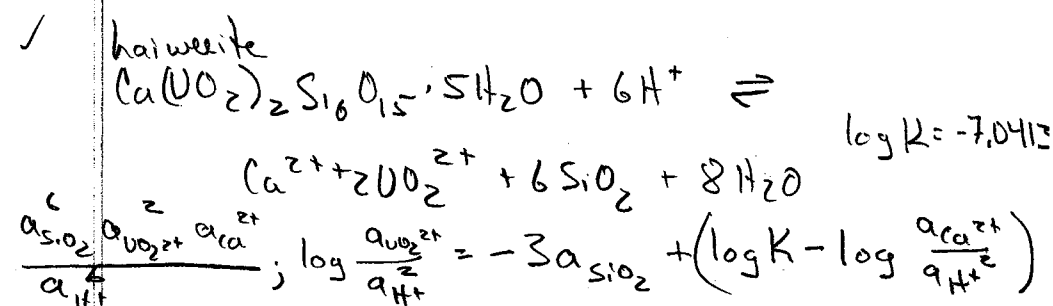 ✓ haiweeite
Ca(UO₂)₂Si₆O₁₅·5H₂O + 6H⁺ ⇌
log K = -7.0413
Ca²⁺ + 2UO₂²⁺ + 6SiO₂ + 8H₂O
a⁶SiO₂ a²UO₂²⁺ aCa²⁺ / a⁶H⁺ ; log aUO₂²⁺ / a²H⁺ = -3aSiO₂ + (log K - log aCa²⁺ / a²H⁺)